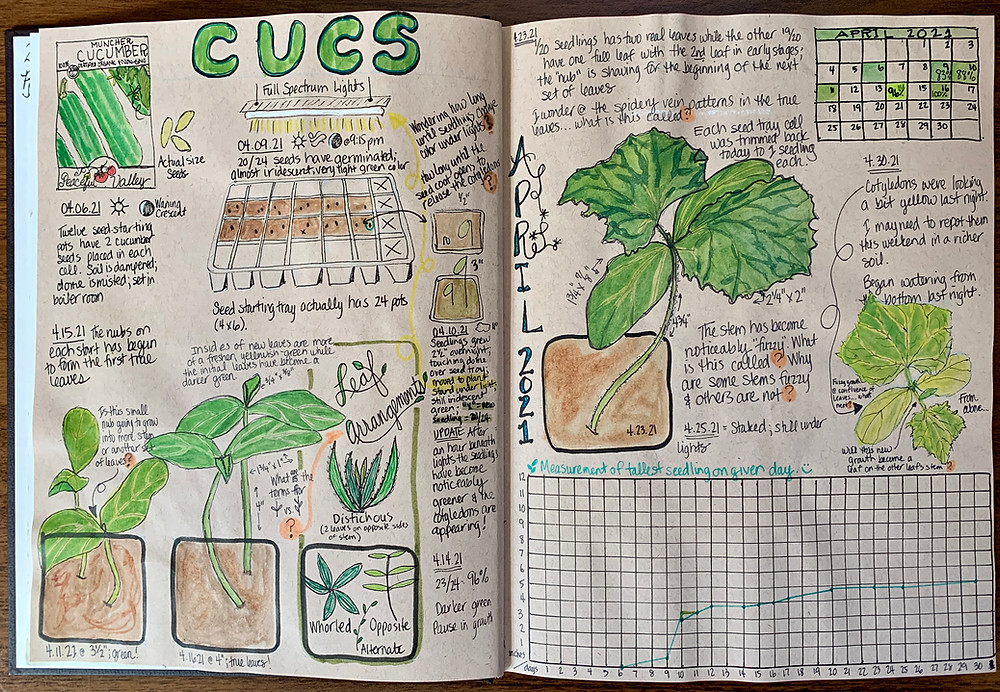 CUCS
MUNCHER
CUCUMBER
Peaceful Valley
Actual Size
Seeds
04.06.21
Waning
Crescent
Twelve seed-starting
pots have 2 cucumber
seeds placed in each
cell. Soil is dampered;
dome is misted; set in
boiler room
4.15.21 The nubs on
each start has begun
to form the first true
leaves
Full Spectrum Lights
04.09.21 @ 9:15pm
20/24 seeds have germinated;
almost iridescent, very light green color
Seed starting tray actually has 24 pots
(4x6).
Wondering how long
until seedlings change
color under lights?
How long until the
seed coat opens to
release the cotyledons
?
1/2"
3"
04.10.21
Seedlings grew
2 1/2" overnight,
touching dome
over seed tray;
moved to plant
stand under light;
still iridescent
green;
Seedling = 20/24
UPDATE: After
an hour beneath
lights the seedlings
have become
noticeably
greener & the
cotyledons are
appearing!
4.14.21
23/24 = 96%
Darker green
Pause in growth
Insides of new leaves are more
of a fresher, yellowish-green while
the initial leaves have become a
darker green
Is this small
nub going to grow
into more stem
or another set
of leaves?
4"
What is the
terms for
vs.
?
Leaf
arrangements
Distichous
(2 leaves on opposite sides
of stem)
Whorled
Opposite
Alternate
4.11.21 @ 3 1/2"; green!
4.16.21 @ 4"; true leaves!
4.23.21
1/20 seedlings has two real leaves while the other 19/20
have one full leaf with the 2nd leaf in early stages;
the "nub" is shaving for the beginning of the next
set of leaves
I wonder @ the spidery vein patterns in the true
leaves... what is this called?
Each seed tray cell
was trimmed back
today to 1 seedling
each.
APRIL 2021
1 2 3
4 5 6 7 8 9 10
83% 88%
11 12 13 15 16 17
96% 100%
18 19 20 21 22 23 24
25 26 27 28 29 30
APRIL 2021
2 1/4" x 2"
4 3/4"
4.23.21
The stem has become
noticeably "fuzzy." What
is this called? Why
are some stems fuzzy
& others are not?
4.25.21 = Staked; still under
lights
4.30.21
Cotyledons were looking
a bit yellow last night.
I may need to repot them
this weekend in a richer
soil.
Began watering from
bottom last night.
Fuzzy growth
@ confluence of
leaves... what
next?
From
above...
Will this new
growth become a
leaf on the other leaf's stem?
Measurement of tallest seedling on given day
12
11
10
9
8
7
6
5
4
3
2
1
inches
days 1 2 3 4 5 6 7 8 9 10 11 12 13 14 15 16 17 18 19 20 21 22 23 24 25 26 27 28 29 30